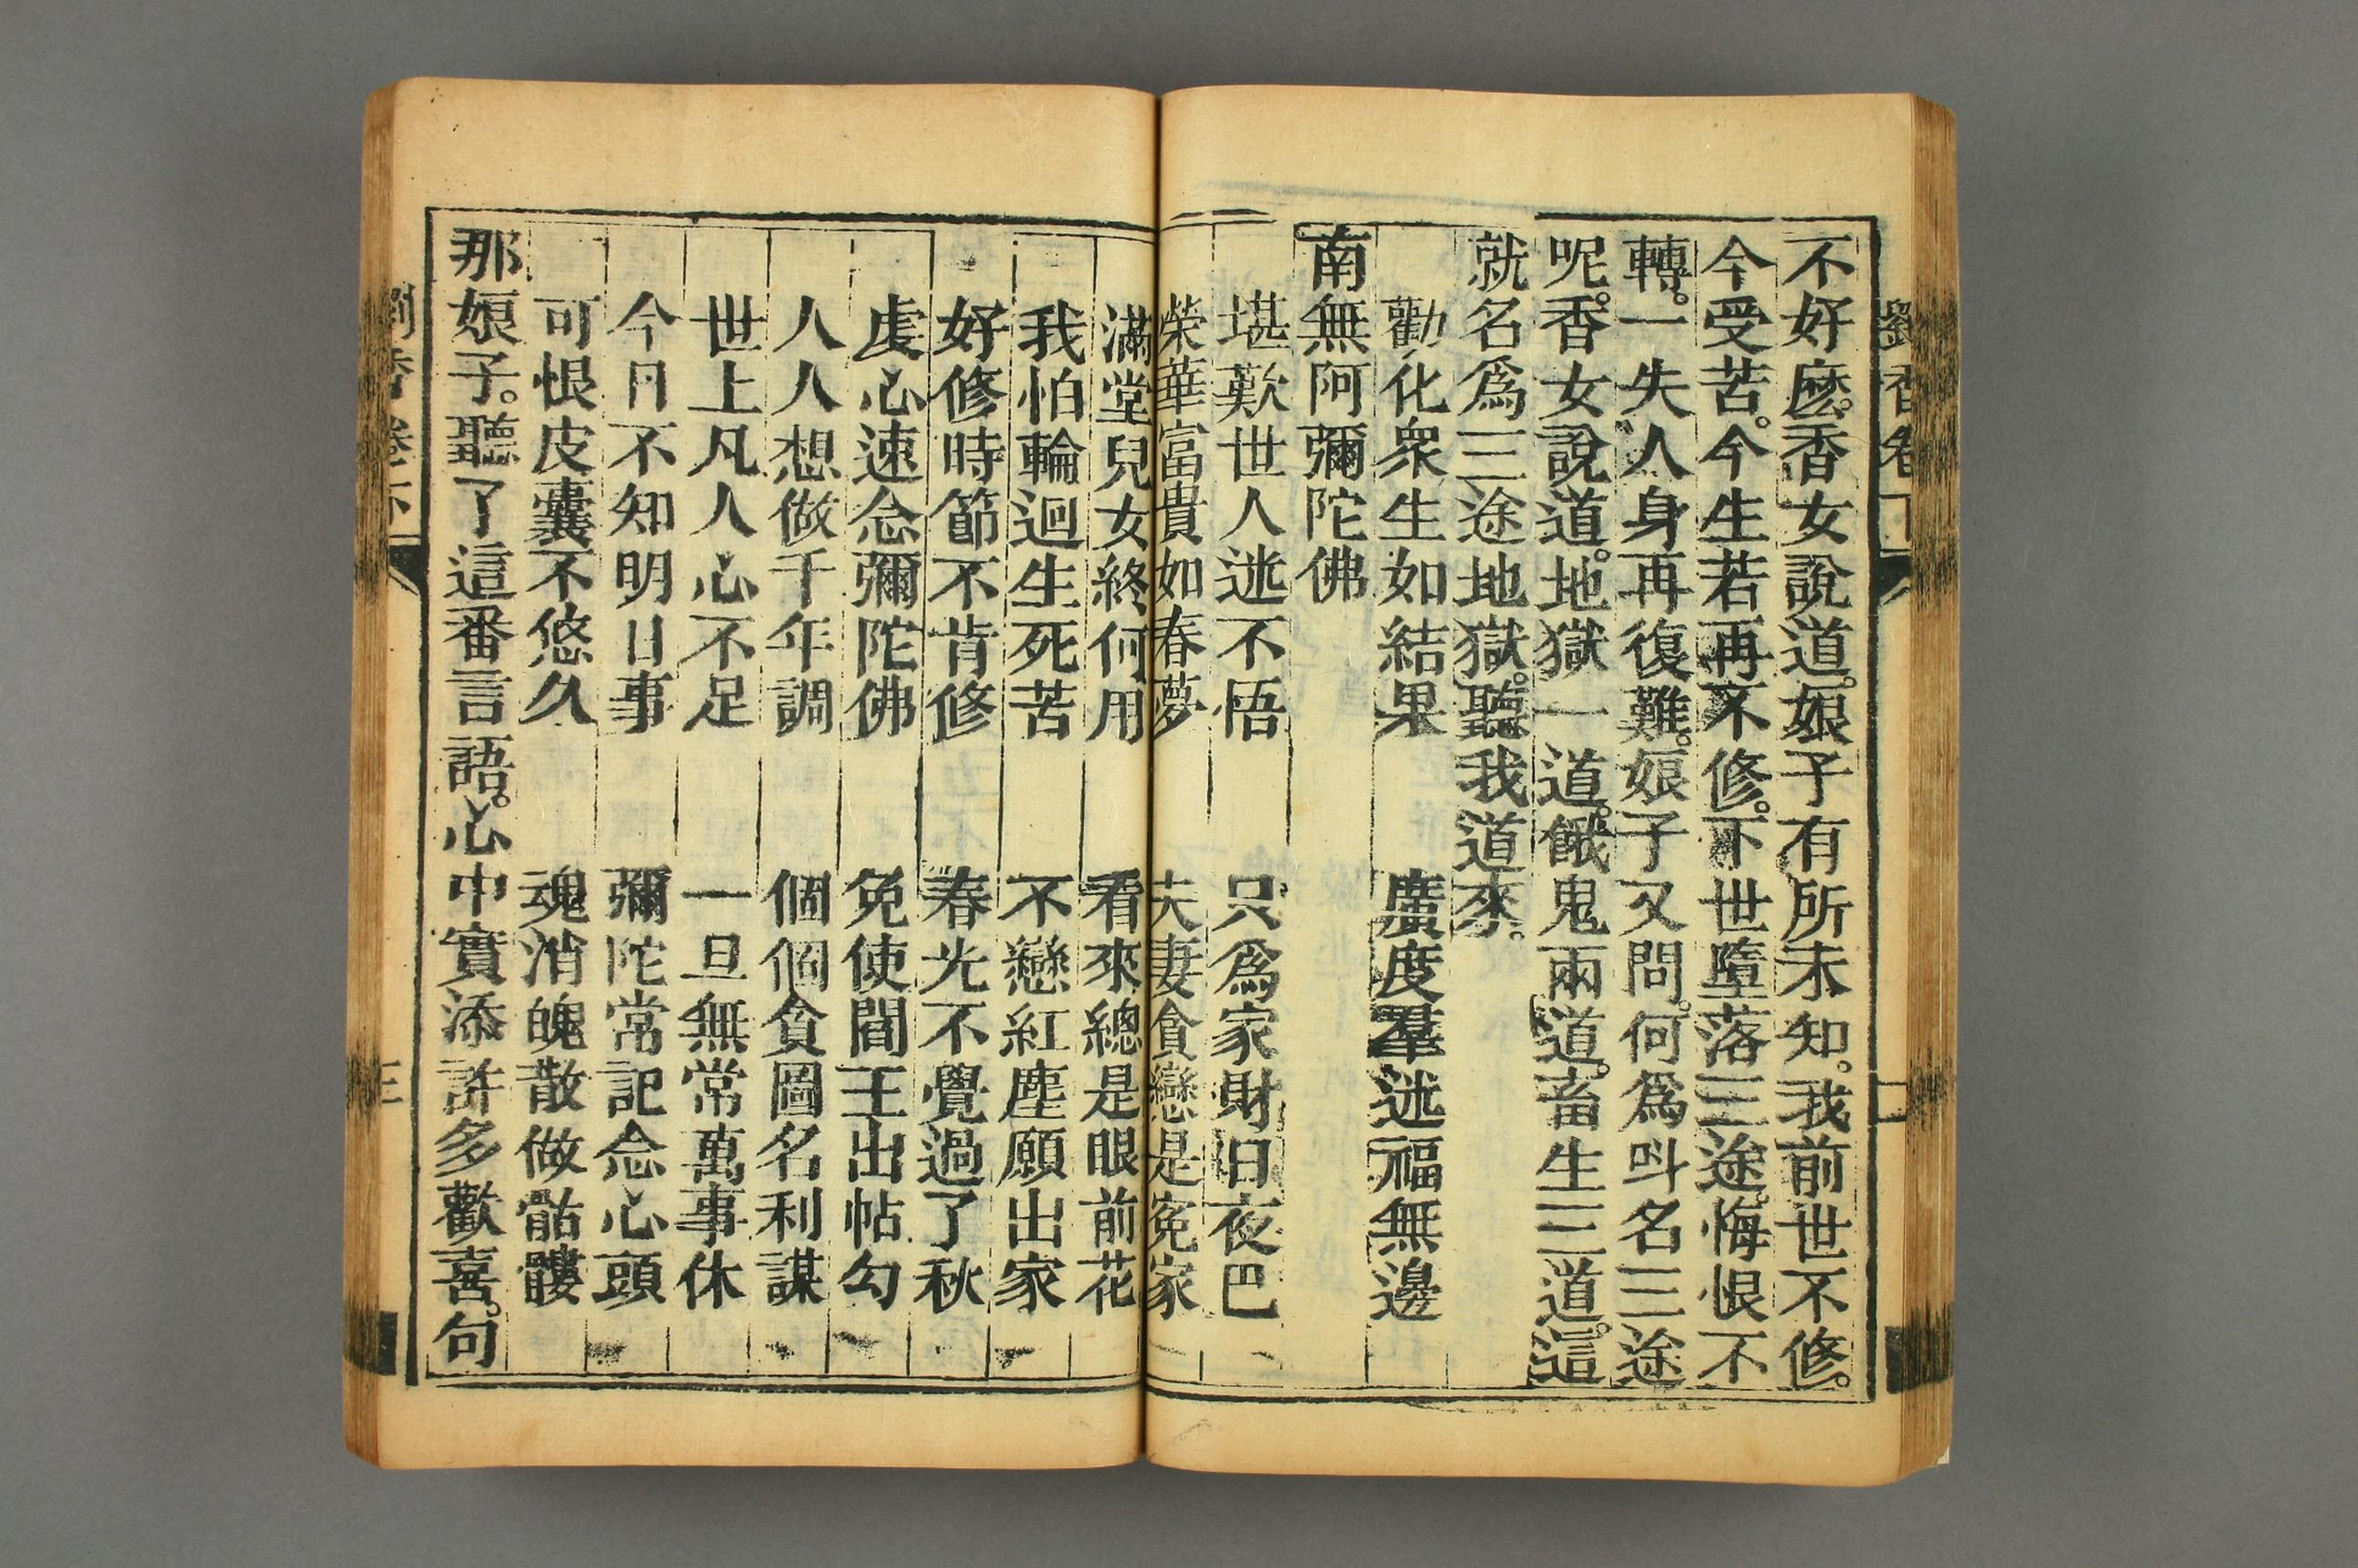 劉香卷下
二
不好麽。香女說道。娘子有所未知。我前世不修。
今受苦。今生若再不修。下世墮落三途。悔恨不
轉。一失人身再復難。娘子又問。何爲呌名三途
呢。香女說道。地獄一道。餓鬼兩道。畜生三道。這
就名爲三途地獄。聽我道來。
勸化衆生如結果　廣度羣迷福無邊
南無阿彌陀佛
堪歎世人迷不悟　只爲家財日夜巴
榮華富貴如春夢　夫妻貪戀是寃家
滿堂兒女終何用　看來總是眼前花
我怕輪迴生死苦　不戀紅塵願出家
好修時節不肯修　春光不覺過了秋
虔心速念彌陀佛　免使閻王出帖勾
人人想做千年調　個個貪圖名利謀
世上凡人心不足　一旦無常萬事休
今日不知明日事　彌陀常記念心頭
可恨皮囊不悠久　魂消魄散做骷髏
那娘子。聽了這番言語。心中實添許多歡喜。句
劉香卷下
三